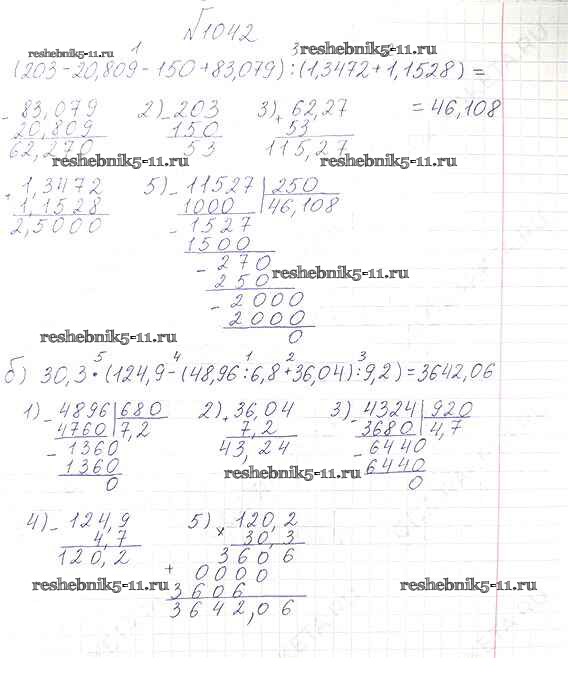 №1042
reshebnik5-11.ru reshebnik5-11.ru
1 3
(203 - 20,809 - 150 + 83,079) : (1,3472 + 1,1528) =
- 83,079 2) - 203 3) + 62,27 = 46,108
20,809 150 53
62,270 53 115,27
reshebnik5-11.ru reshebnik5-11.ru
+ 1,3472 5) - 11527 | 250
1,1528 1000 46,108
2,5000 - 1527
1500
- 270
250 reshebnik5-11.ru
- 2000
2000
0
reshebnik5-11.ru
5 4 1 2 3
б) 30,3 • (124,9 - (48,96 : 6,8 + 36,04) : 9,2) = 3642,06
1) - 4896 | 680 2) + 36,04 3) - 4324 | 920
4760 7,2 7,2 3680 4,7
- 1360 43,24 - 6440
1360 reshebnik5-11.ru 6440
0 0
4) - 124,9 5) × 120,2
4,7 30,3
120,2 3606
+ 0000
reshebnik5-11.ru 3606 reshebnik5-11.ru
3642,06